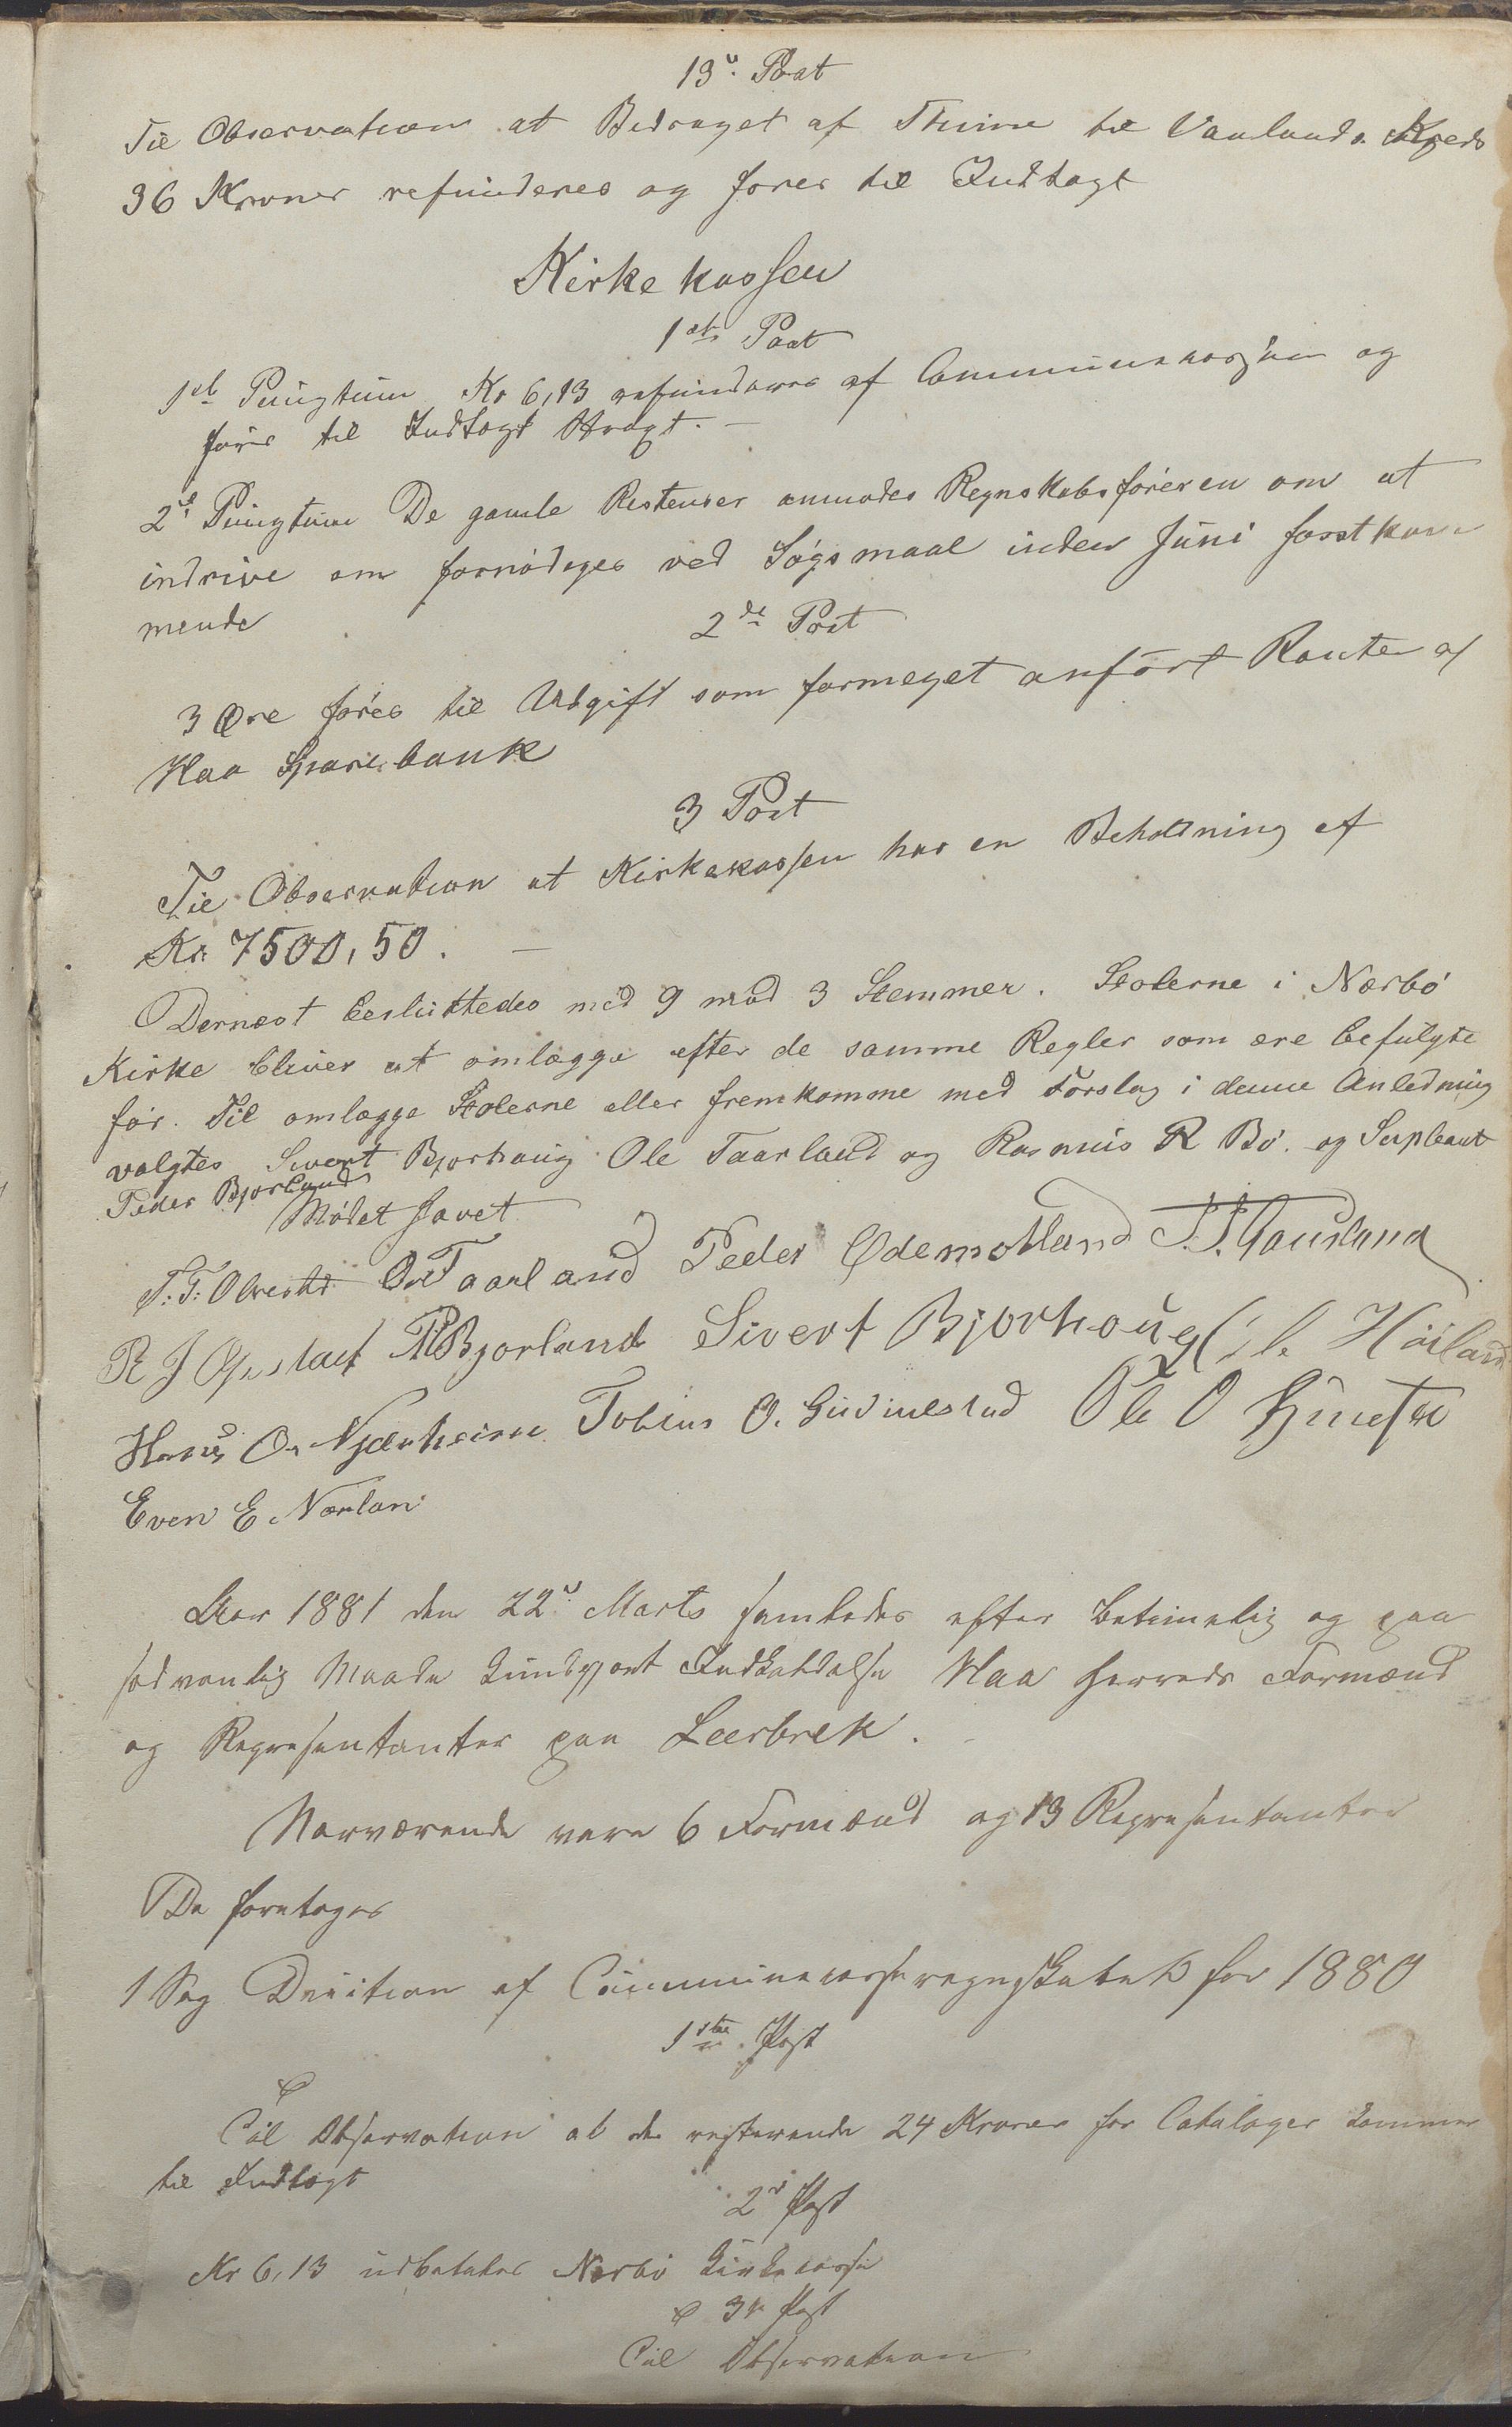 13de Post
Til Observation at Bidraget af Thime til Vaulands Kreds
36 Kroner refunderes og føres til Indtægt
Kirkekassen
1ste Post
1st Pungtum Kr 6,13 refunderes af Communekassen og
føres til Indtægt
2det Pungtum De gamle Restenser anmodes Regnskabsføreren om at
indrive om fornødiges ved Søgsmaal inden Juni førstkom
mende
2den Post
3 Øre føres til Udgift som formeget anført Renter af
Haa Sparebank
3 Post
Til Observation at Kirkekassen har en Beholdning af
Kr. 7500,50. —
Dernæst besluttedes med 9 mod 3 Stemmer. Stolerne i Nærbø
Kirke bliver at omlægge efter de samme Regler som ere befulgte
før. Til omlægge Stolerne eller fremkomme med Forslag i denne Anledning
valgtes Sivert Bjorhaug Ole Taarland og Rasmus R Bø. og Supleant
Peder Bjorland
Mødet hævet
T. T. Obrestad Ole Taarland Peder Ødemotland T. T. Taarland
R J Opstad P Bjorland Sivert Bjorhoug Ole Høiland
Hans O. Njærheim Tobias O. Gudmestad Ole O
Even E. Nærlan
Aar 1881 den 22de Marts samledes efter betimelig og paa
sædvanlig Maade kundgjort Indkaldelse Haa Herreds Formænd
og Repræsentanter paa Leerbrek.
Nærværende vare 6 Formænd og 13 Repræsentanter
Da foretoges
1 Sag Decition af Communekasseregnskabet for 1880
1ste Post
Til Observation at de resterende 24 Kroner for Cataloger kommer
til Indtægt
2de Post
Kr 6,13 udbetales Nærbø Kirkekasse
3de Post
Til Observation